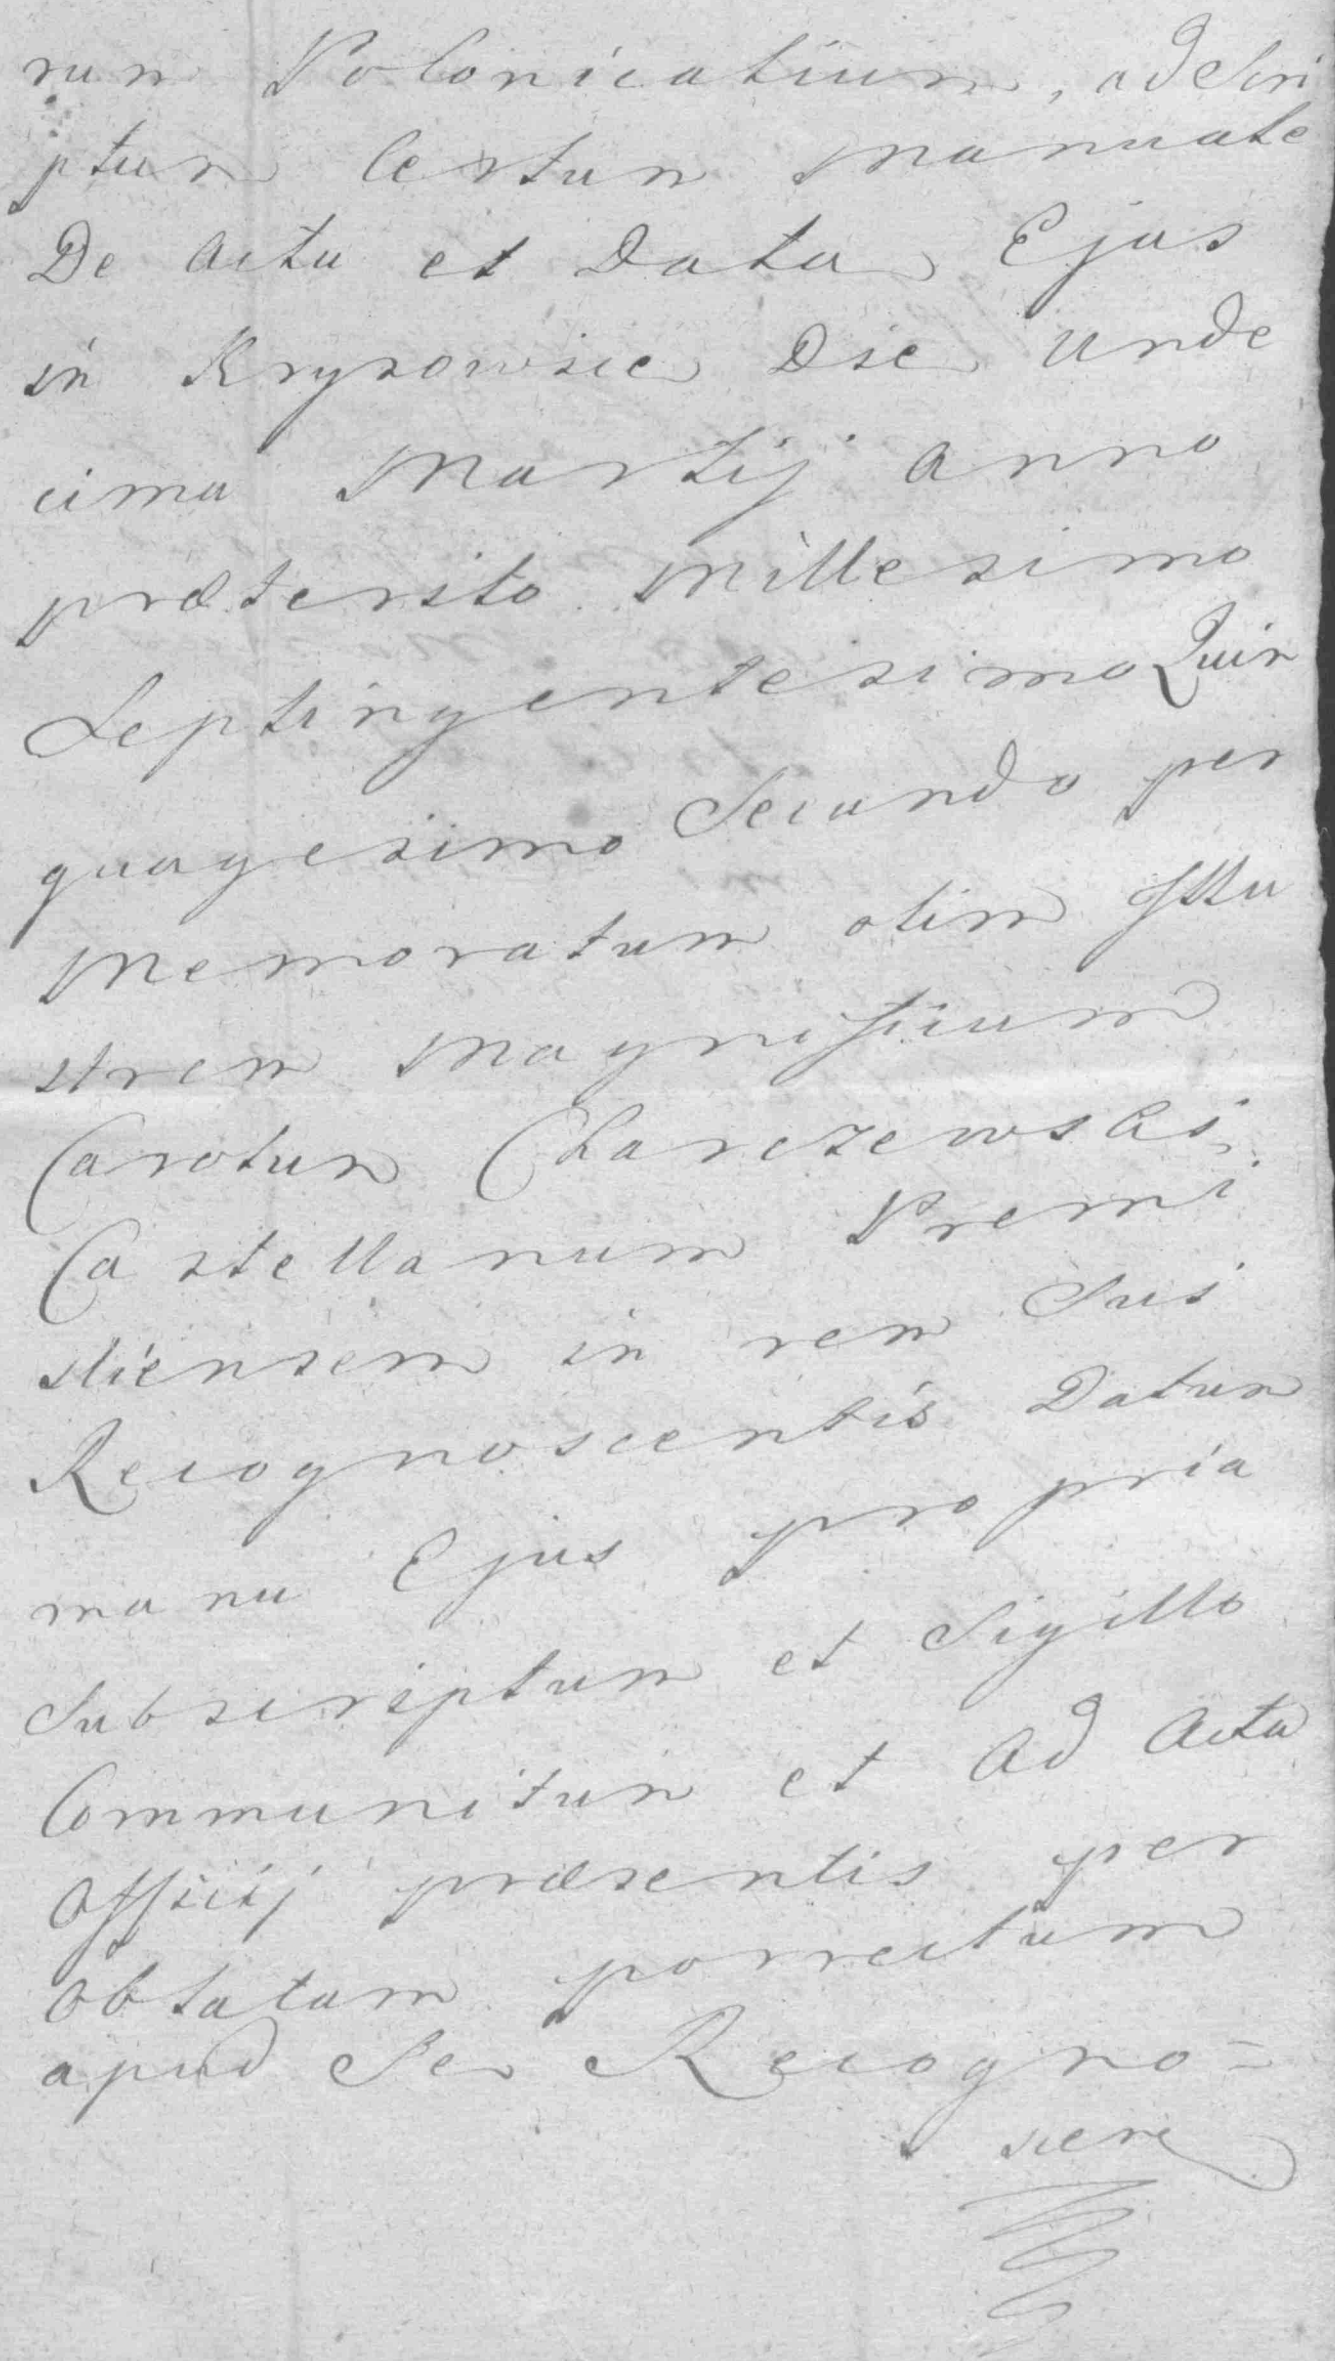 rum Polonicalium, ad Scri
ptum Certum Manuale
De Actu et Data Ejus
in Krysowice Die Unde
cima Martij Anno
præterito Millesimo
Septingentesimo Quin
quagesimo Secundo per
Memoratum olim Illu
strem Magnificum
Carolum Charczewski
Castellanum Premi
sliensem in rem Sui
Recognoscentis Datum
manu Ejus propria
Subscriptum et Sigillo
Communitum et Ad Acta
Officij præsentis per
Oblatam porrectum
apud Se Recogno=
scere